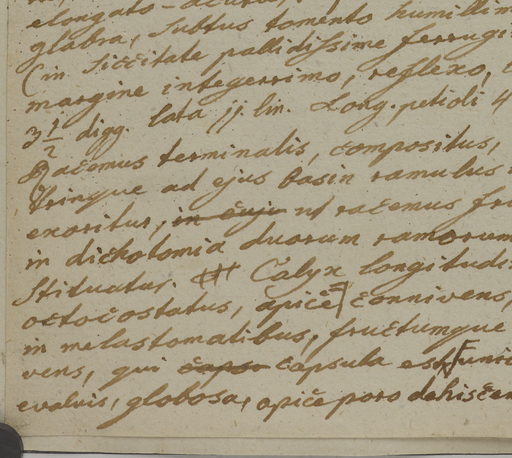 elongato-acutus,
glabra, subtus tomento humillim
(in siccitate pallidissime ferrugi
margine integerrimo, reflexo,
3 1/2 digg. lata jj. lin. Long. petioli 4
Racemus terminalis, compositus,
Utringue ad ejus basin ramulus
exoritur, in cuju ut racemus fru
in dichotomia duorum ramorum
stituatur. Calyx longitudi
octocostatus, apice connivens,
in melastomatibus, fructumque
vens, qui capso capsula est unic
evalvis, globosa, apice poro dehiscen